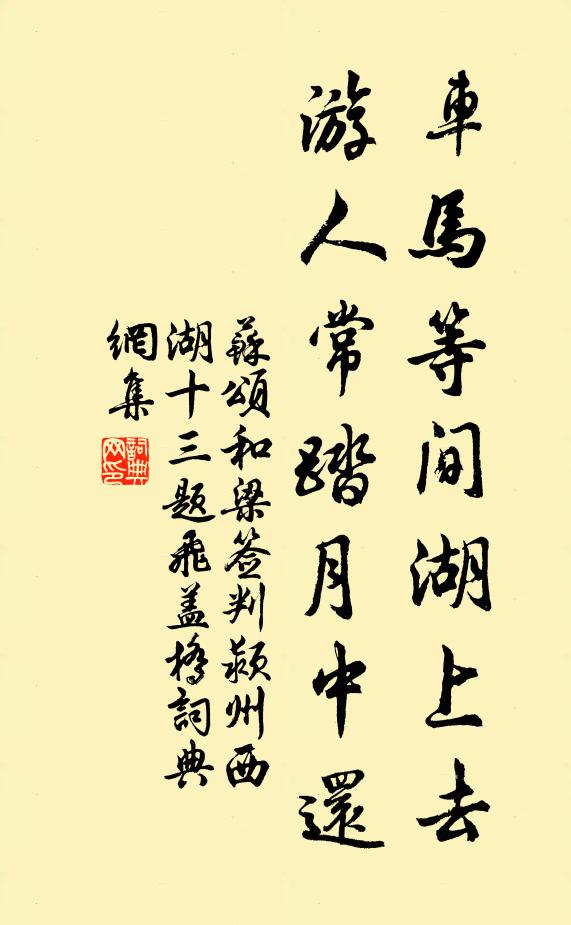 車馬等閒湖上去
游人常踏月中還
蘇頌和梁签判颍州西
湖十三题飛盖橋詞典
網集
詞典
网印